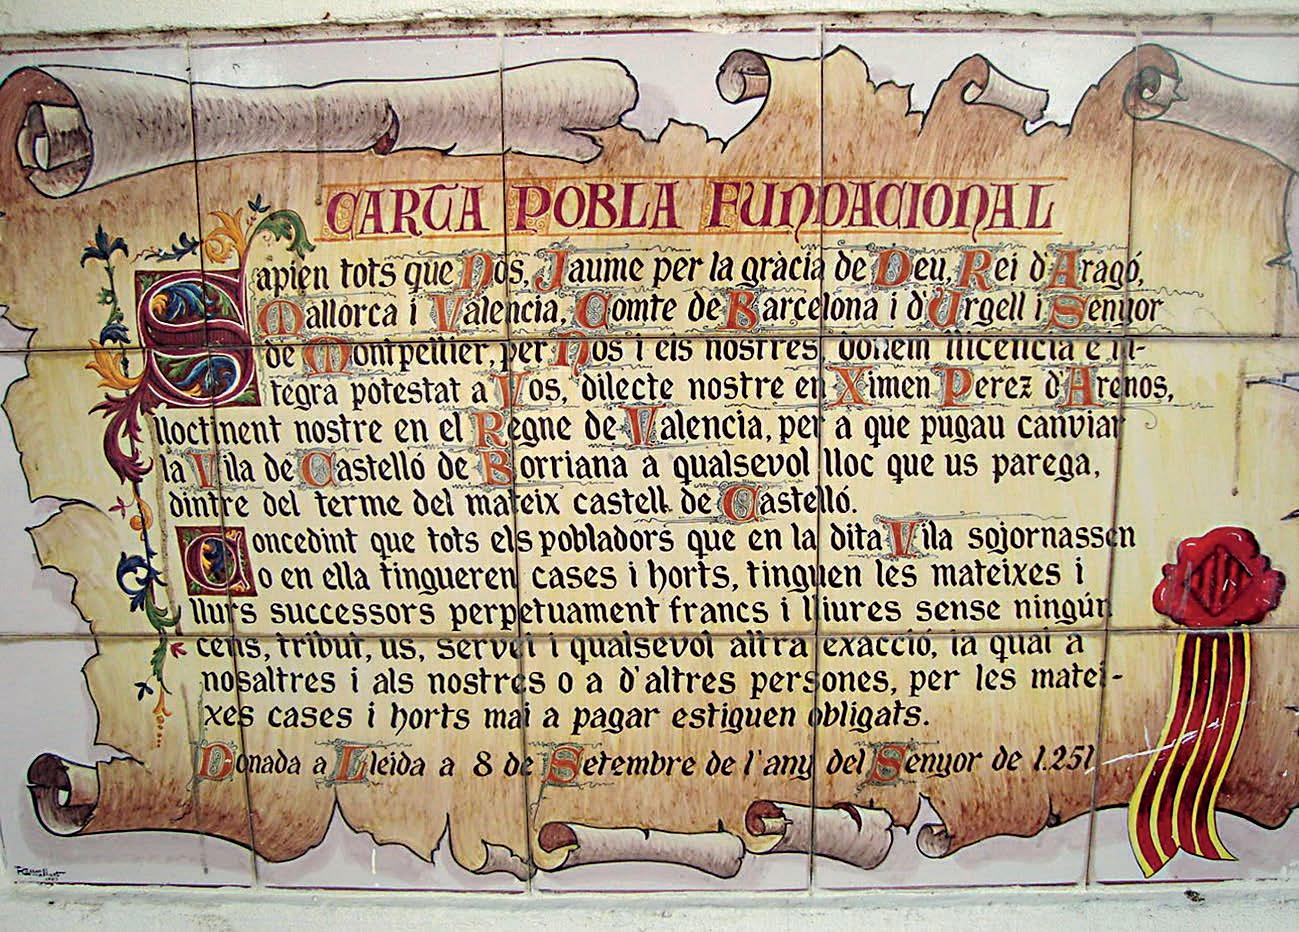 CARTA POBLA FUNDACIONAL
Sapien tots que Nos, Jaume per la gràcia de Deu, Rei d'Aragó,
Mallorca i Valencia, Comte de Barcelona i d'Urgell i Senyor
de Montpellier, per Nos i els nostres, donem llicencia e in-
tegra potestat a Vos, dilecte nostre en Ximen Perez d'Arenos,
lloctinent nostre en el Regne de Valencia, per a que pugau canviar
la Vila de Castelló de Borriana a qualsevol lloc que us parega,
dintre del terme del mateix castell de Castelló.
Concedint que tots els pobladors que en la dita Vila sojornassen
o en ella tingueren cases i horts, tinguen les mateixes i
llurs successors perpetuament francs i lliures sense ningún
cens, tribut, us, servei i qualsevol altra exacció, la qual a
nosaltres i als nostres o a d'altres persones, per les matei-
xes cases i horts mai a pagar estiguen obligats.
Donada a Lleida a 8 de Setembre de l'any del Senyor de 1.251